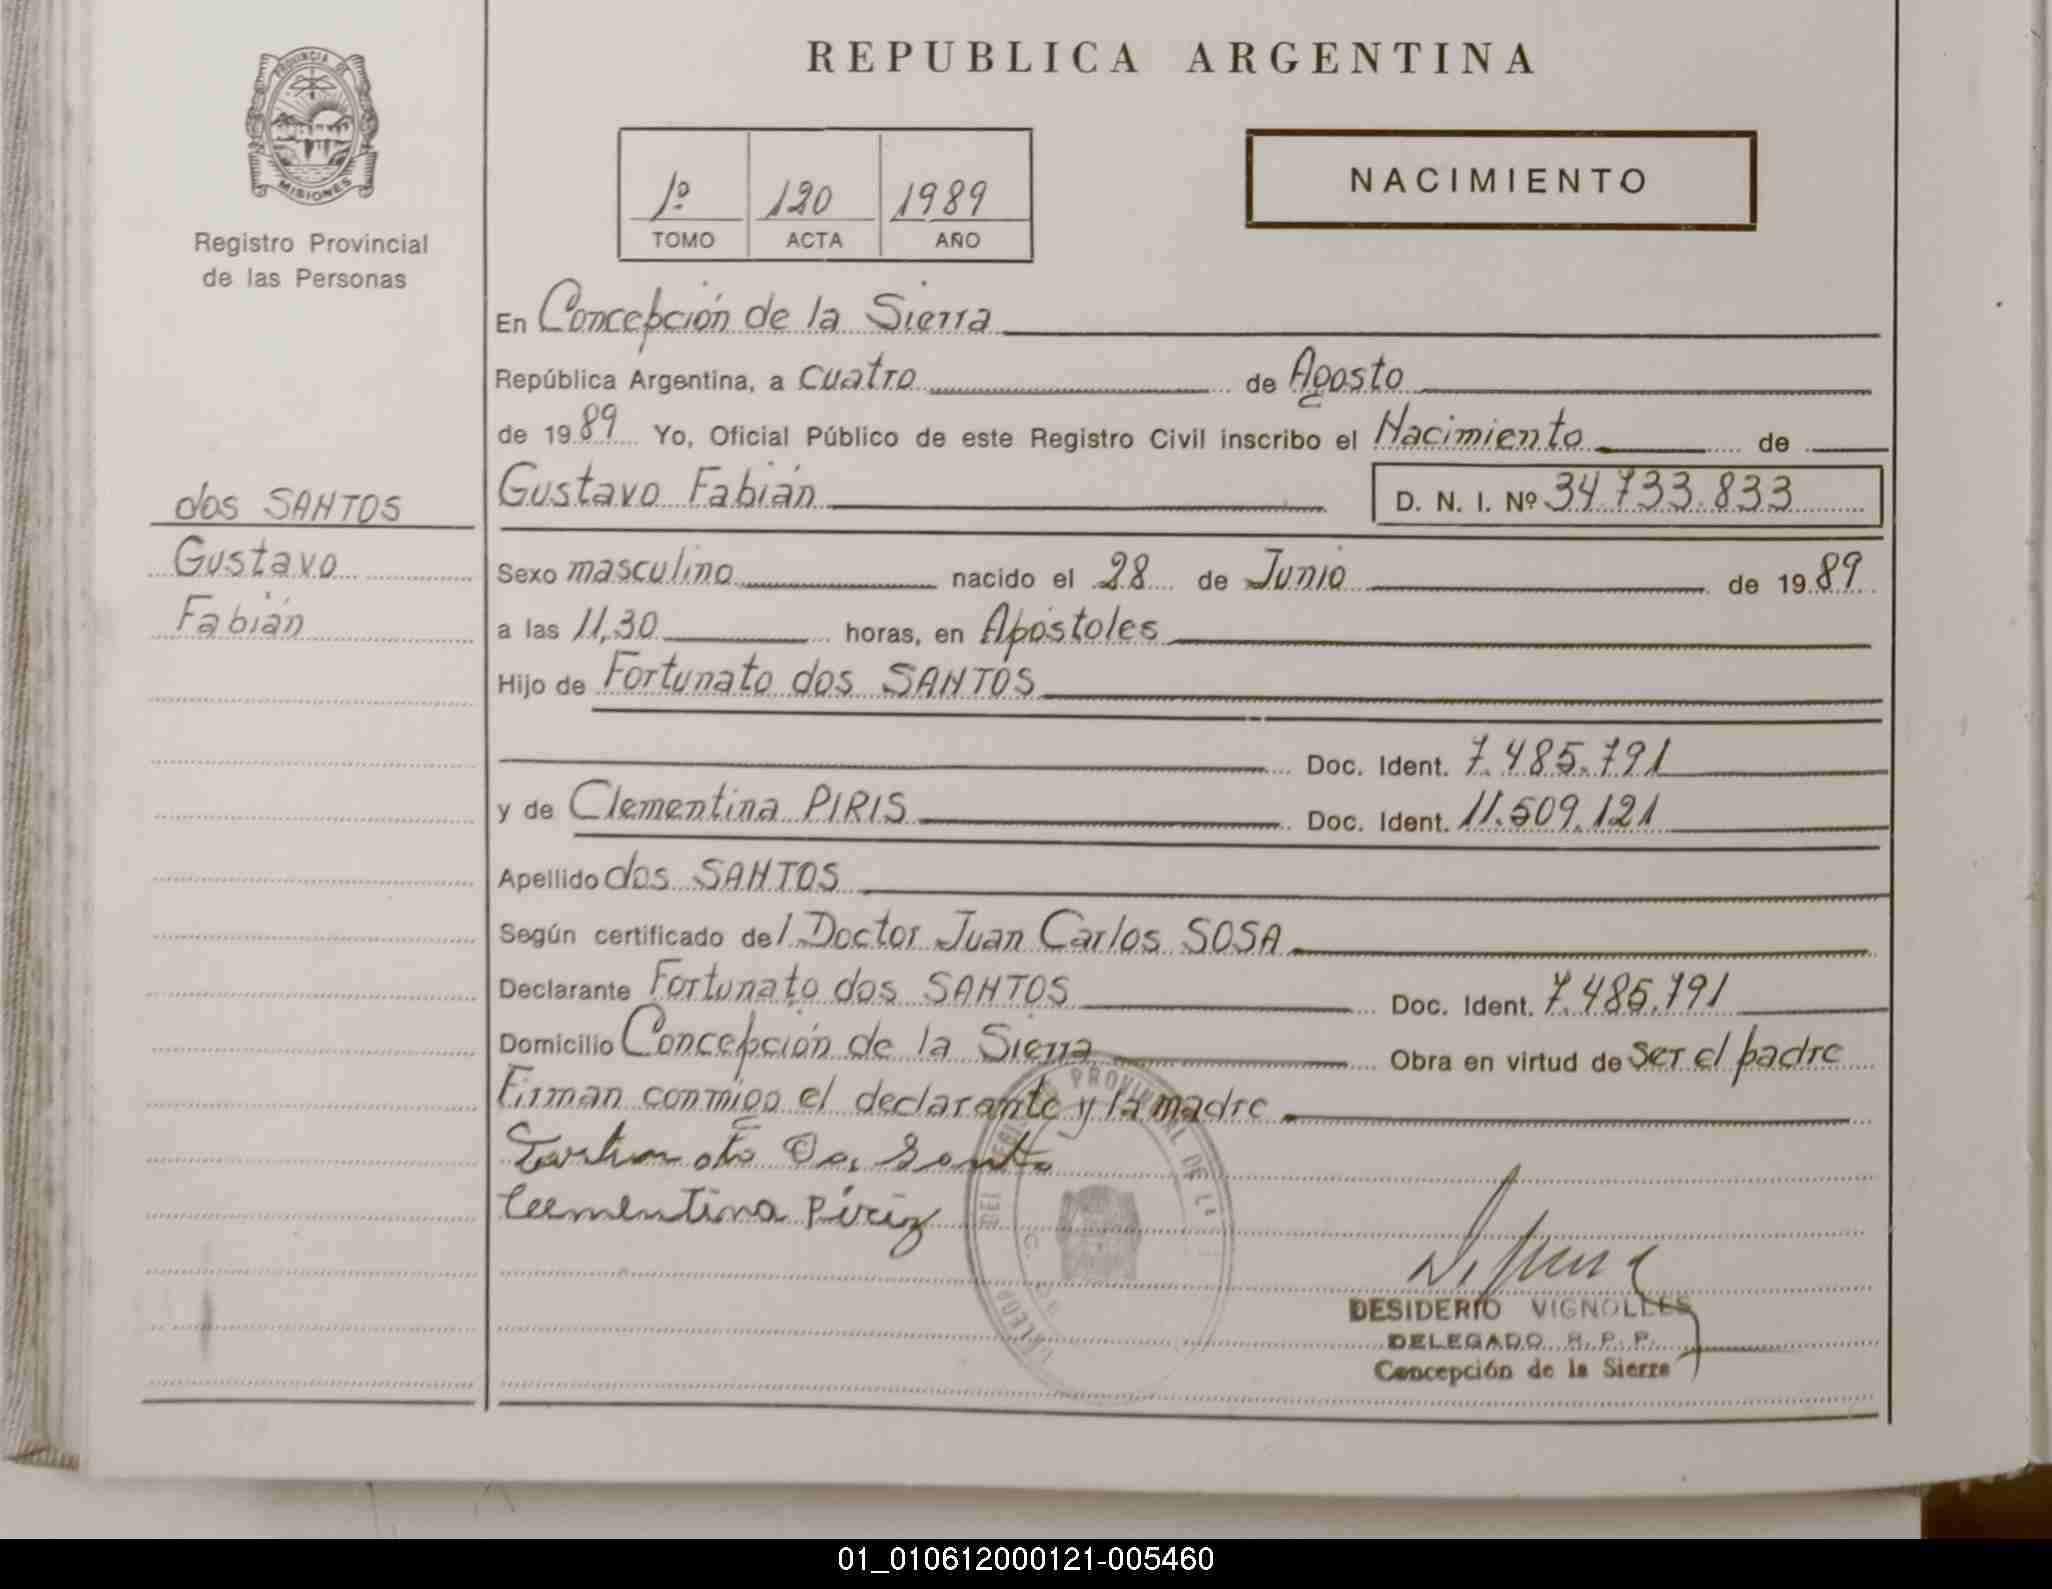 REPUBLICA ARGENTINA
PROVINCIA DE
MISIONES
Registro Provincial
de las Personas
1º 120 1989
TOMO ACTA AÑO
NACIMIENTO
En Concepción de la Sierra
República Argentina, a cuatro de Agosto
de 1989 Yo, Oficial Público de este Registro Civil inscribo el Nacimiento de
Gustavo Fabián D. N. I. Nº 34.733.833
dos SANTOS
Gustavo
Fabián
Sexo masculino nacido el 28 de Junio de 1989
a las 11,30 horas, en Apóstoles
Hijo de Fortunato dos SANTOS
Doc. Ident. 7.485.791
y de Clementina PIRIS Doc. Ident. 11.509.121
Apellido dos SANTOS
Según certificado del Doctor Juan Carlos SOSA
Declarante Fortunato dos SANTOS Doc. Ident. 7.485.791
Domicilio Concepción de la Sierra Obra en virtud de ser el padre
Firman conmigo el declarante y la madre
Clementina Píriz
DESIDERIO VIGNOLLES
DELEGADO R. P. P.
Concepción de la Sierra
01_010612000121-005460